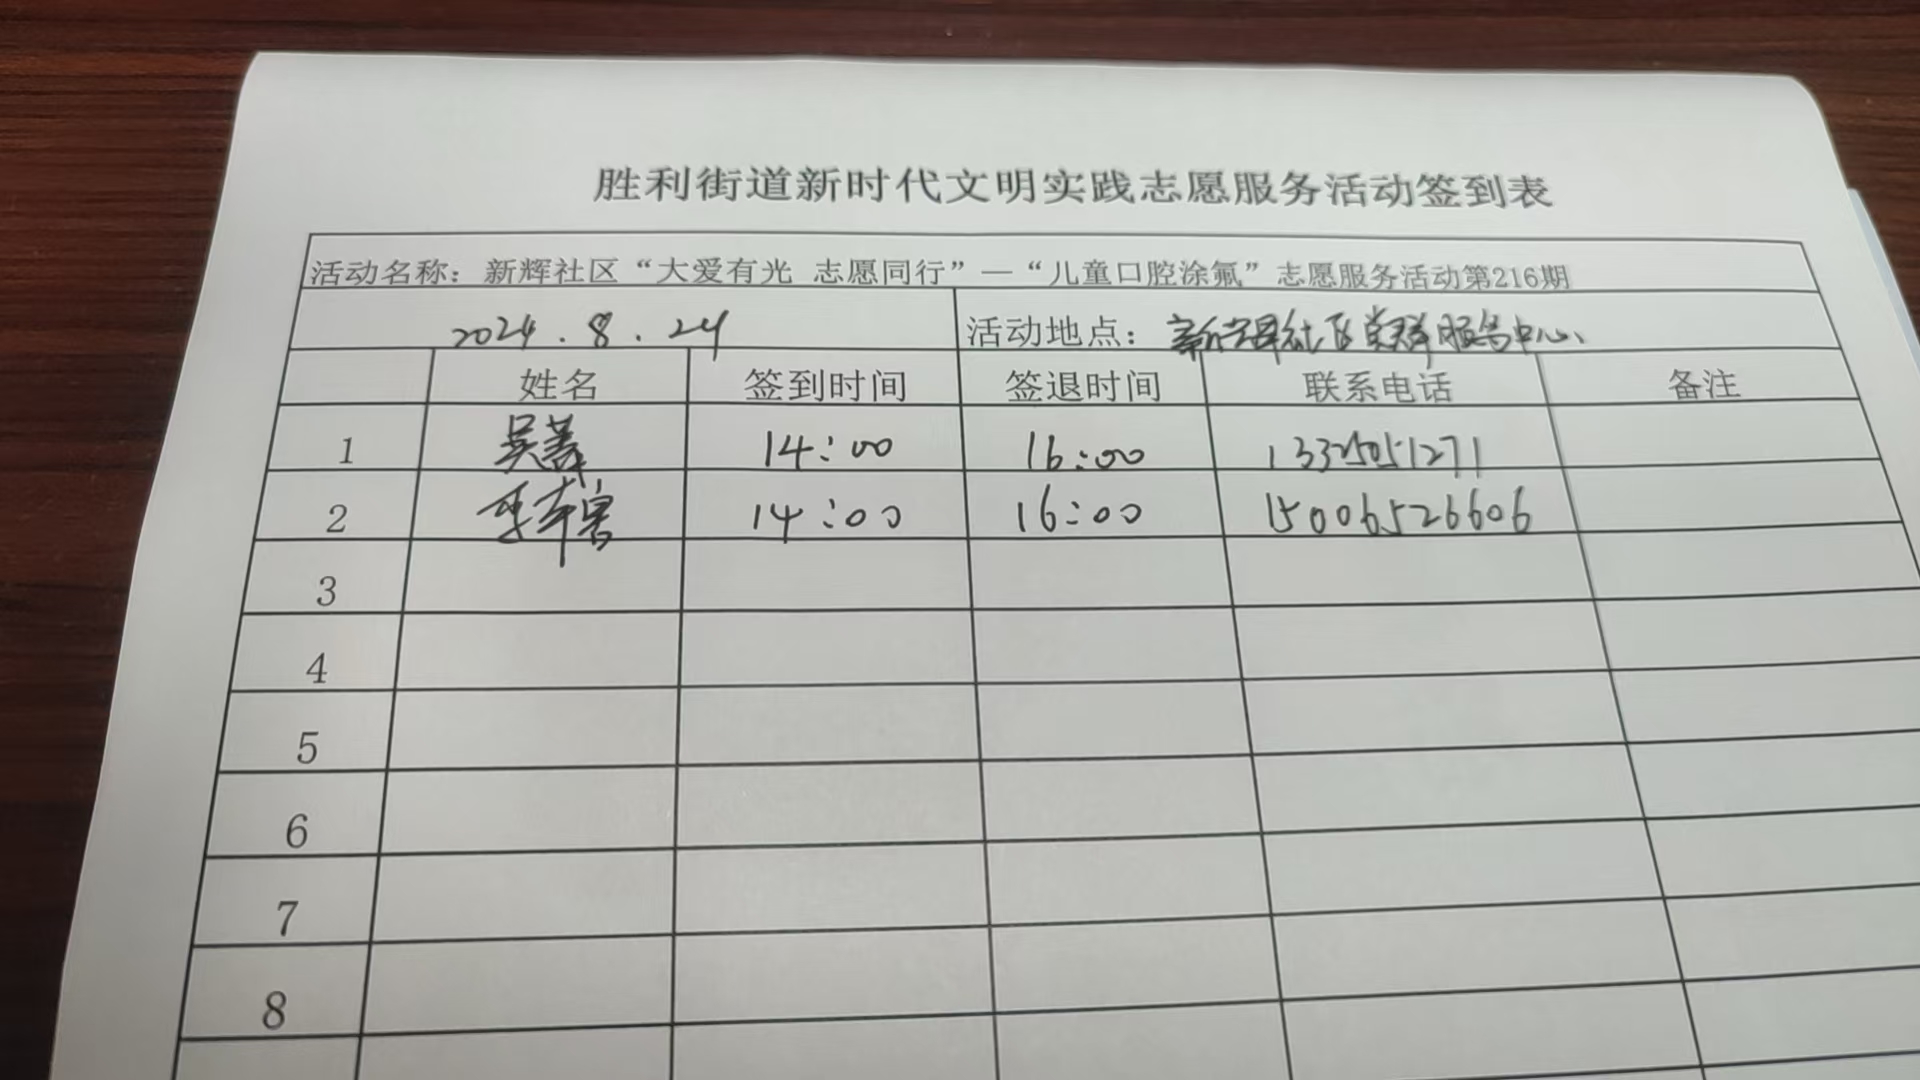 胜利街道新时代文明实践志愿服务活动签到表
活动名称：新辉社区“大爱有光 志愿同行”—“儿童口腔涂氟”志愿服务活动第216期
2024.8.24 活动地点：新辉社区党群服务中心
姓名 签到时间 签退时间 联系电话 备注
1 吴 14:00 16:00 13325051271
2 14:00 16:00 15006526606
3
4
5
6
7
8